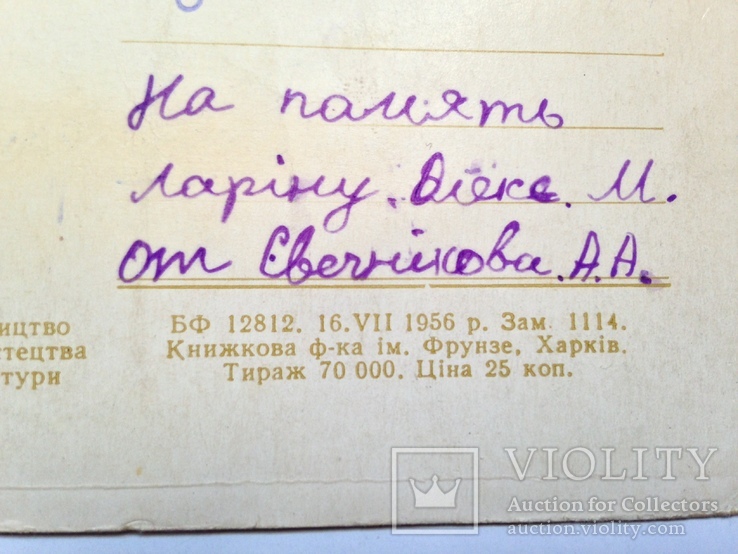 На память
Ларіну. Алекс. М.
от Свечнікова. А.А.
ицтво
стецтва
тури
БФ 12812. 16.VII 1956 р. Зам 1114.
Книжкова ф-ка ім. Фрунзе, Харків.
Тираж 70 000. Ціна 25 коп.
VIOLITY
Auction for Collectors
auction.violity.com